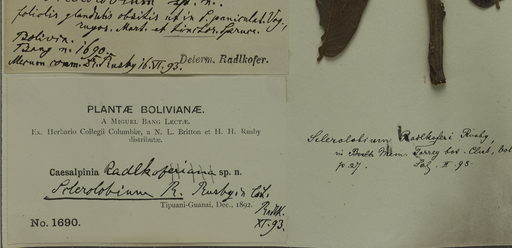 foliolis glandulis obsitis ut in S. paniculat. Vog.,
rugos. Mart. et
Bolivia.
Bang n. 1690.
comm. Dr. Rusby 16.XI.93. Determ. Radlkofer.
PLANTÆ BOLIVIANÆ.
A MIGUEL BANG LECTÆ.
Ex. Herbario Collegii Columbiæ, a N. L. Britton et H. H. Rusby
distributæ.
Caesalpinia Radlkoferiana sp. n.
Sclerolobium R. Rusby in
Tipuani-Guanai, Dec., 1892.
Radlk.
XI.93.
No. 1690.
Sclerolobium Radlkoferi Rusby,
in Mem. Torrey bot. Club, Vol
p. 27. II. 95.